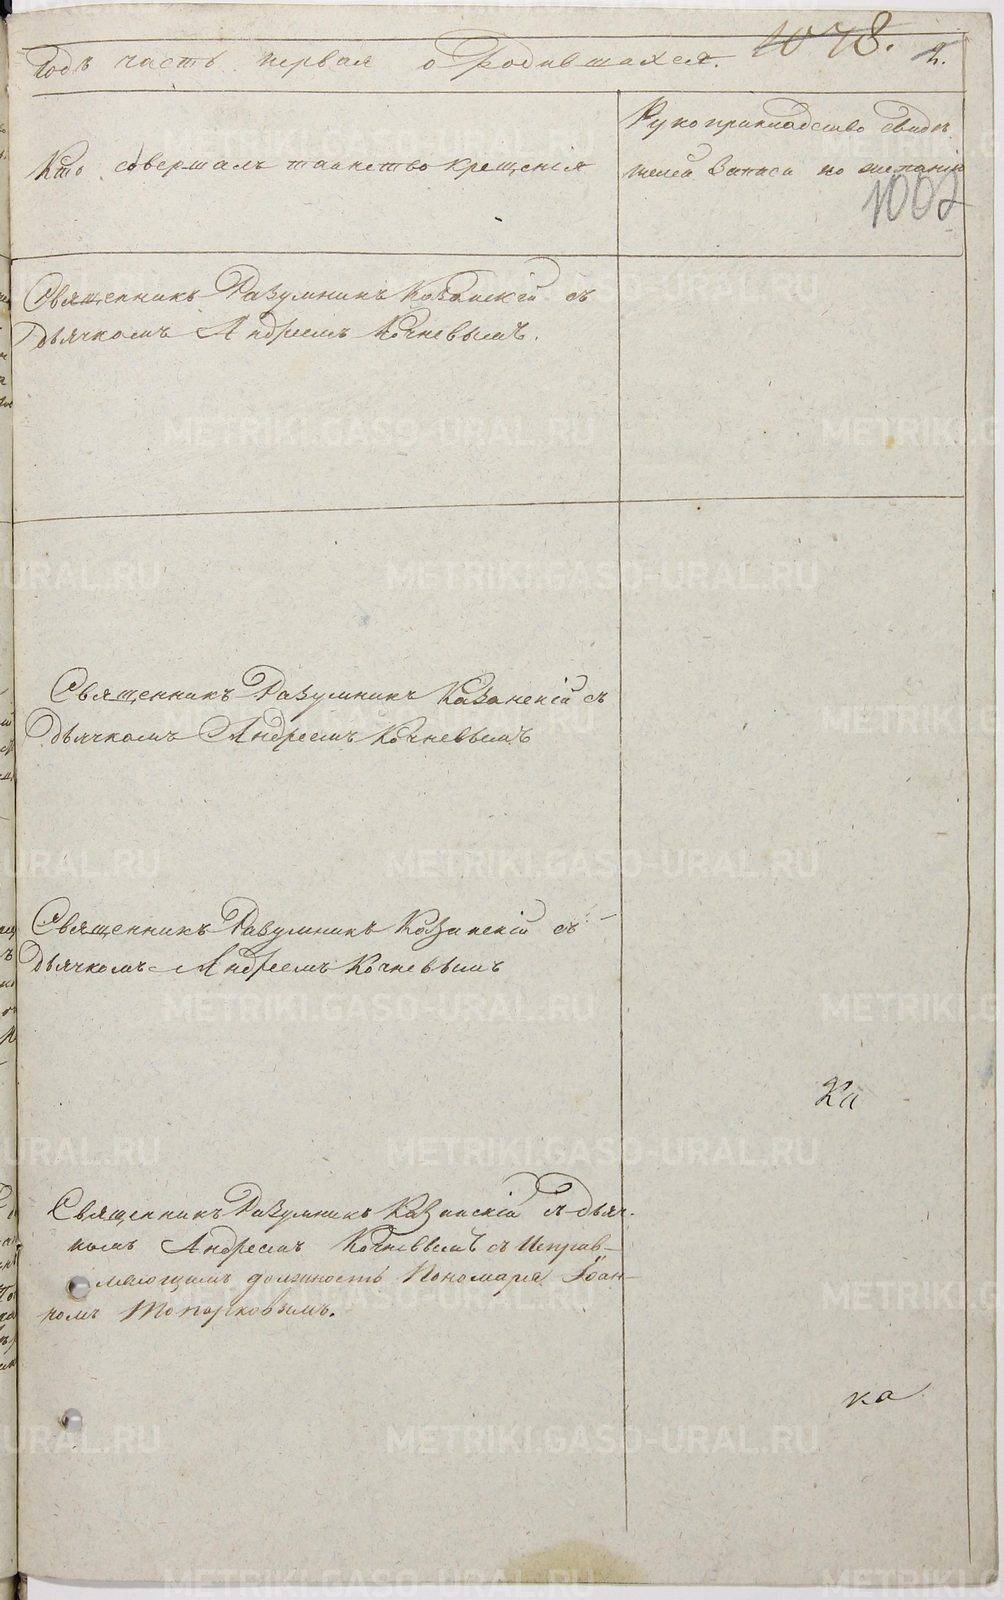 годъ часть первая о родившихся. 1078. 2.
Кто совершалъ таинство крещенія
Рукоприкладство свидѣ
телей записи по желанію
1002
Священникъ Разумникъ Казанскій съ
дьячкомъ Андреемъ Кочневымъ.
Священникъ Разумникъ Казанскій съ
дьячкомъ Андреемъ Кочневымъ
Священникъ Разумникъ Казанскій съ
дьячкомъ Андреемъ Кочневымъ
Ка
Священникъ Разумникъ Казанскій съ дьяч-
комъ Андреемъ Кочневымъ съ исправ-
ляющимъ должность Пономаря Іоан-
номъ Топорковымъ.
ка
METRIKI.GASO-URAL.RU